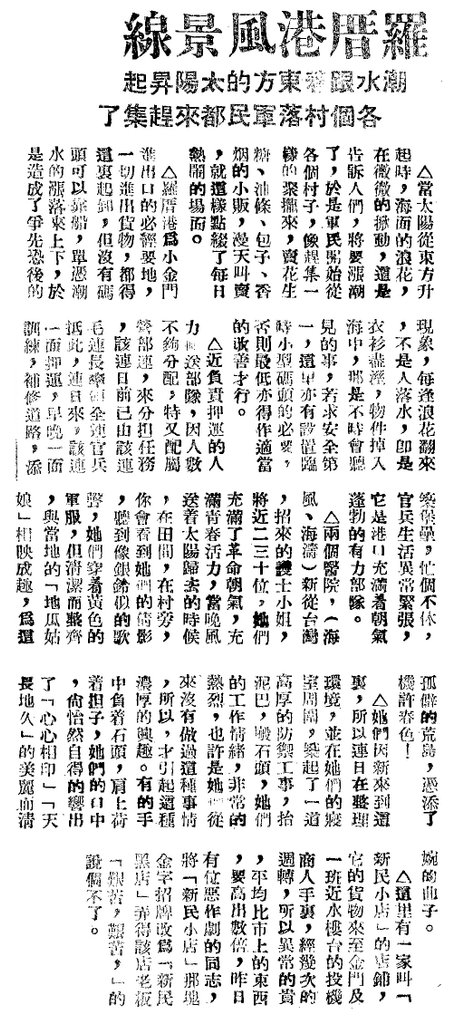 羅厝港風景線
潮水跟着東方的太陽昇起
各個村落軍民都來趕集了
△當太陽從東方升
起時,海面的浪花,
在微微的掀動,這是
告訴人們,將要漲潮
了,於是軍民開始從
各個村子,像趕集一
樣的聚攏來,賣花生
糖、油條、包子、香
烟的小販,漫天叫賣
,就這樣點綴了每日
熱鬧的場面。
△羅厝港為小金門
進出口的必經要地,
一切進出貨物,都得
這裏起卸,但沒有碼
頭可以靠船,單憑潮
水的漲落來上下,於
是造成了爭先恐後的
現象,每逢浪花翻來
,不是人落水,即是
衣衫盡濕,物件掉入
海中,那是不時會聽
見的事,若求安全第
一,這里亦有設置臨
時小型碼頭的必要,
否則最低亦得作適當
的改善才行。
△近負責押運的人
力輸送部隊,因人數
不夠分配,特又配屬
營部連,來分担任務
,該連日前已由該連
毛連長率領全連官兵
抵此,連日來,該連
一面押運,早晚一面
訓練,補修道路,添
築堡壘,忙個不休,
官兵生活異常緊張,
它是港口充滿着朝氣
蓬勃的有力部隊。
△兩個醫院,(海
風、海濤)新從台灣
,招來的護士小姐,
將近二三十位,她們
充滿了革命朝氣,充
滿青春活力,當晚風
送着太陽歸去的時候
,在田間,在村旁,
你會看到她們的倩影
,聽到像銀鈴似的歌
聲,她們穿着黃色的
軍服,但清潔而整齊
,與當地的「地瓜姑
娘」相映成趣,為這
孤僻的荒島,憑添了
機許春色!
△她們因新來到這
裏,所以連日在整理
環境,並在她們的寢
室周圍,築起了一道
高厚的防禦工事,抬
泥巴,搬石頭,她們
的工作情緒,非常的
熱烈,也許是她們從
來沒有做過這種事情
,所以,才引起這種
濃厚的興趣。有的手
中負着石頭,肩上荷
着担子,她們的口中
,尙怡然自得的響出
了「心心相印」「天
長地久」的美麗而清
婉的曲子。
△這里有一家叫「
新民小店」的店鋪,
它的貨物來至金門及
一班近水樓台的投機
商人手裏,經幾次的
週轉,所以異常的貴
,平均比市上的東西
,要高出數倍,昨日
有位惡作劇的同志,
將「新民小店」那塊
金字招牌改爲「新民
黑店」弄得該店老板
「艱苦,艱苦,」的
說個不了。